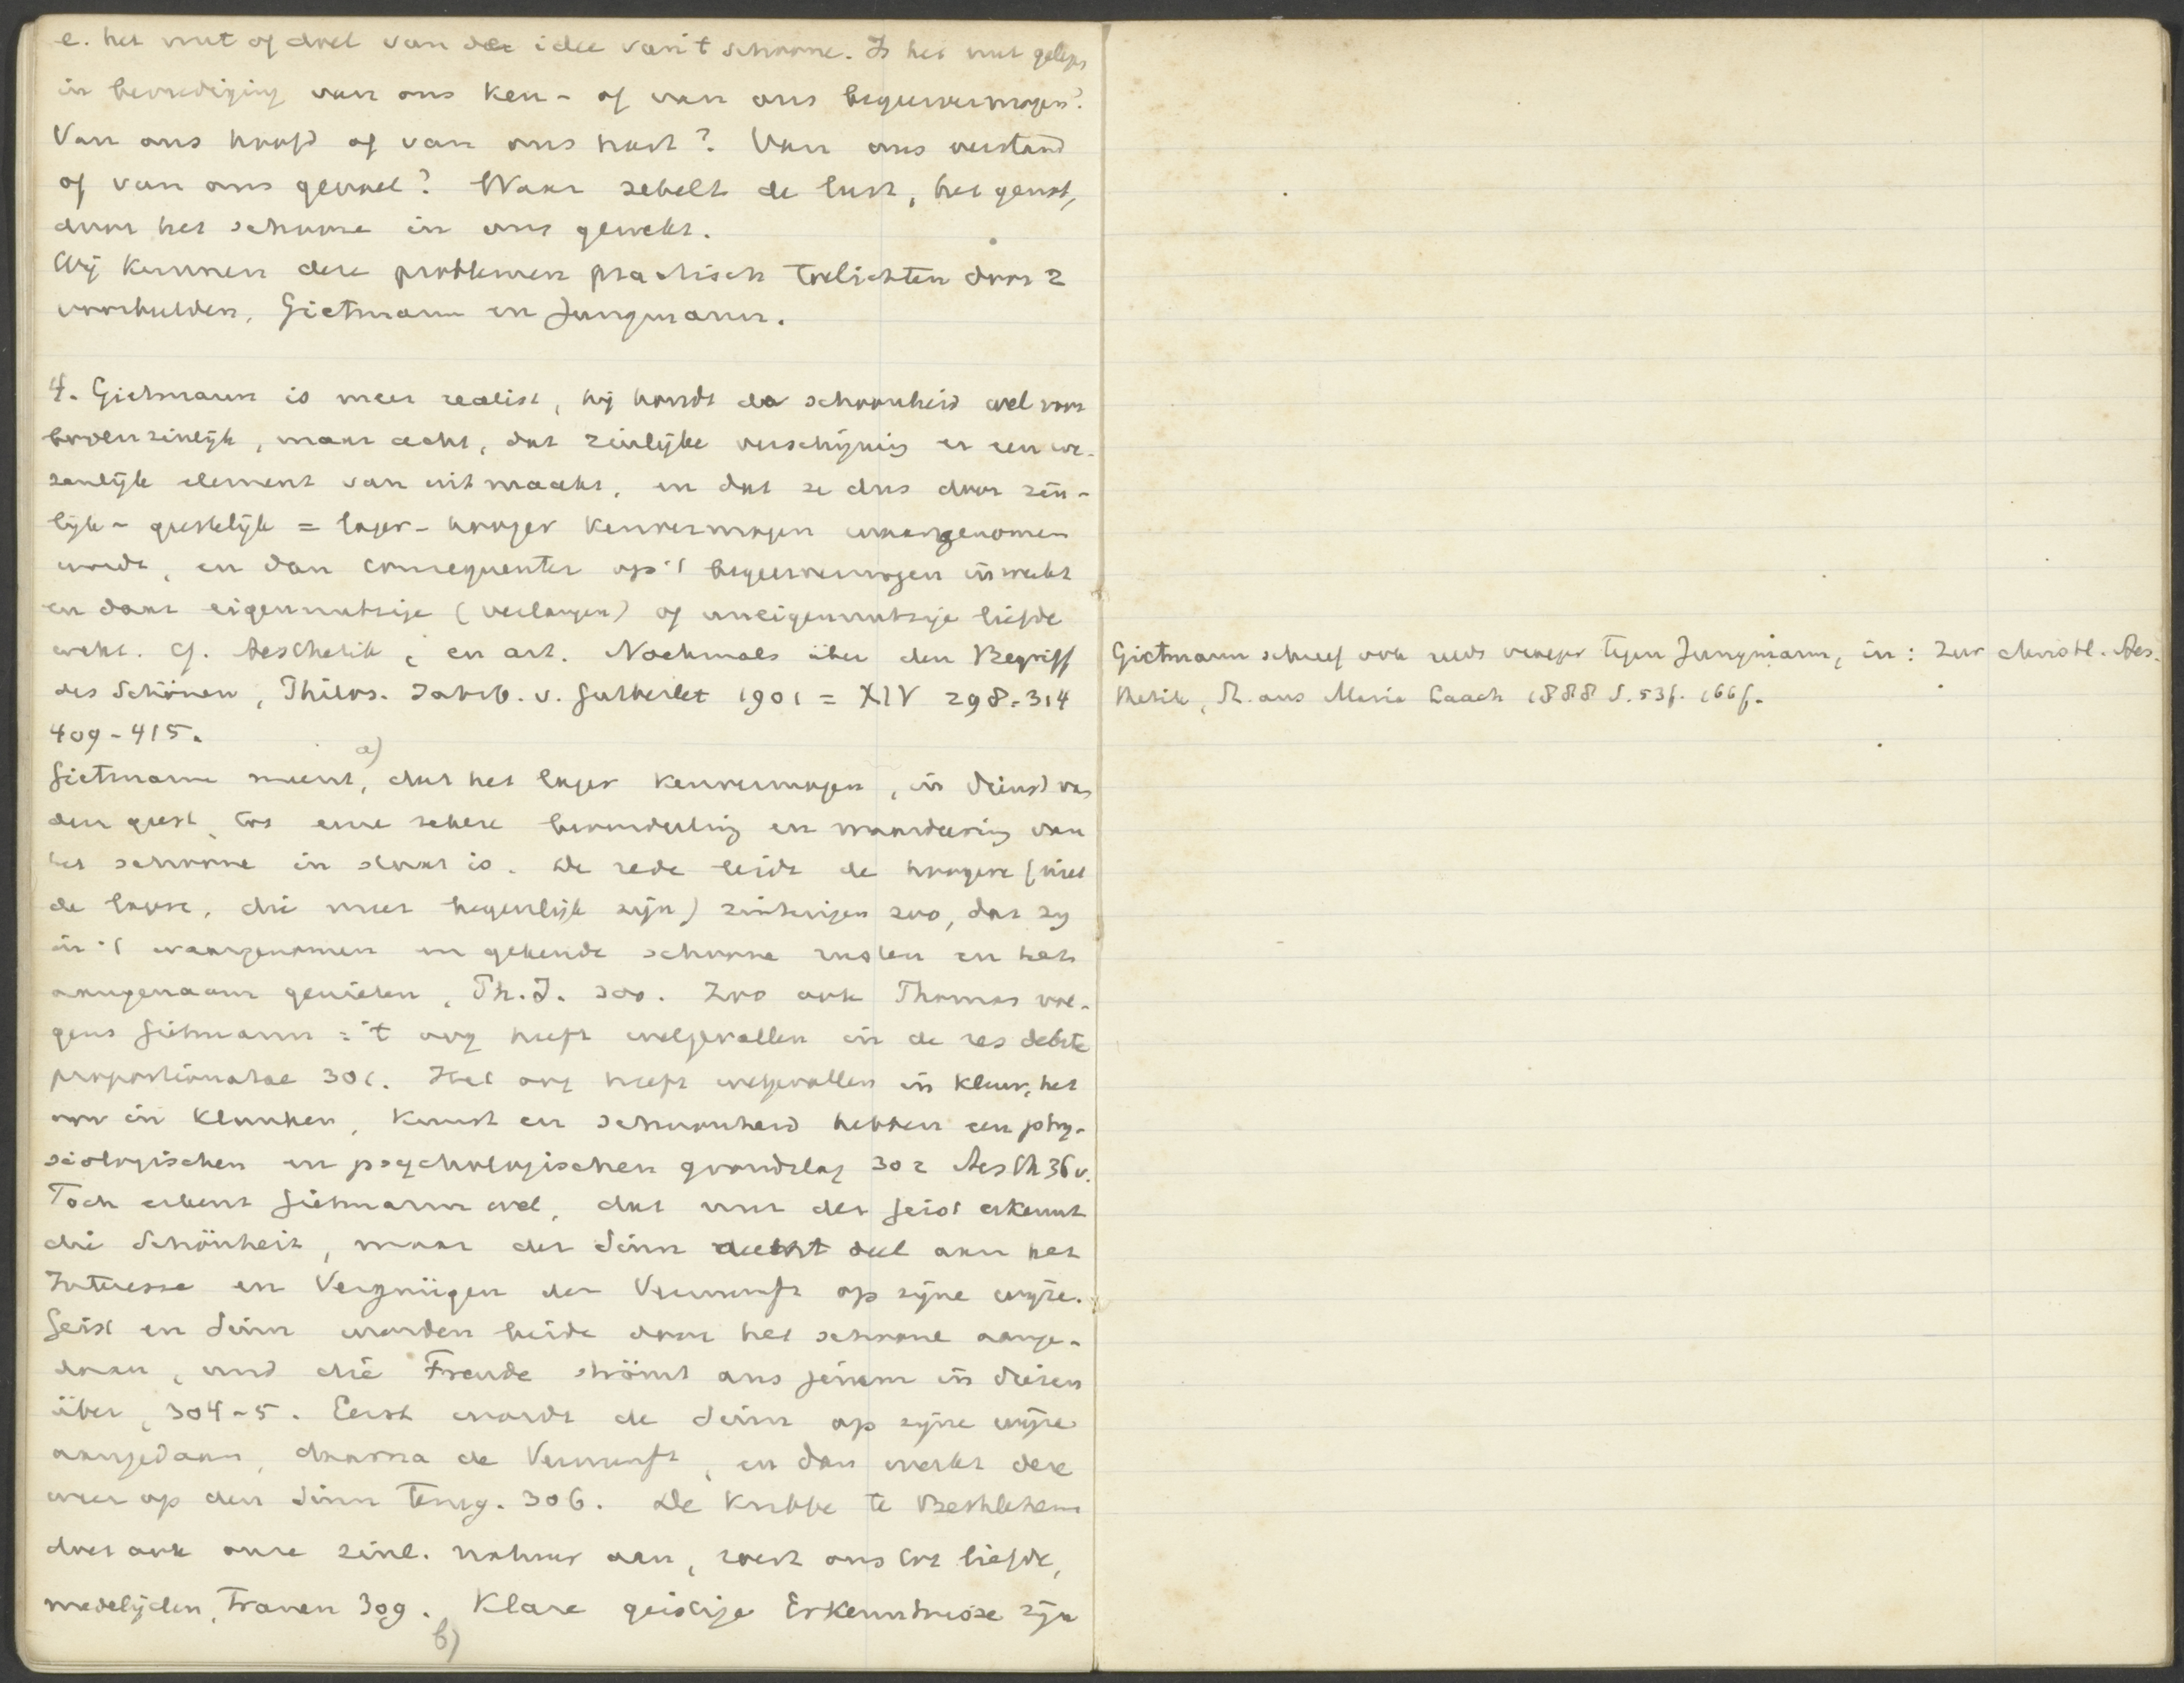 e. het nut of doel van de idee van 't schoone. Is het nut gelegen
in bevrediging van ons ken- of van ons begeervermogen?
Van ons hoofd of van ons hart? Van ons verstand
of van ons gevoel? Waar zetelt de lust, het genot,
door het schoone in ons gewekt.
Wij kunnen deze problemen practisch toelichten door 2
voorbeelden, Gietmann en Jungmann.
4. Gietmann is meer realist, hij houdt de schoonheid wel voor
bovenzinlijk, maar acht, dat zinlijke verschijning er een we-
zenlijk element van uitmaakt, en dat ze dus door zin-
lijk-geestelijk = lager-hooger kenvermogen waargenomen
wordt, en dan consequenter op 't begeervermogen inwerkt
en daar eigennutzige (verlangen) of uneigennutzige liefde
wekt. Cf. Aesthetik, en art. Nochmals über den Begriff
des Schönen, Philos. Jahrb. v. Gutberlet 1901 = XIV 298-314
409-415.
a)
Gietmann meent, dat het lager kenvermogen, in dienst van
den geest, tot eene zekere beoordeeling en waardeering van
het schoone in staat is. De rede leidt de hoogere (niet
de lagere, die meer begeerlijk zijn) zintuigen zoo, dat zij
in 't waargenomen en gekende schoone rusten en het
aangenaam genieten, Ph. J. 300. Zoo ook Thomas vol-
gens Gietmann: 't oog heeft welgevallen in de res debite
proportionatae 301. Het oog heeft welgevallen in kleur, het
oor in klanken, kunst en schoonheid hebben een phy-
siologischen en psychologischen grondslag 302 Aesth 36 v.
Toch erkent Gietmann wel, dat nur der Geist erkennt
die Schönheit, maar der Sinn deelt aan het
Interesse en Vergnügen der Vernunft op zijne wijze.
Geist en Sinn worden beide door het schoone aange-
daan, und die Freude strömt aus jenem in diesen
über, 304-5. Eerst wordt de Sinn op zijne wijze
aangedaan, daarna de Vernunft, en dan werkt deze
weer op den Sinn terug. 306. De kribbe te Bethlehem
doet ook onze zinl. natuur aan, roert ons tot liefde,
medelijden, tranen 309. Klare geistige Erkenntnisse zijn
b)
Gietmann schreef ook reeds vroeger tegen Jungmann, in: Zur christl. Aes-
thetik, St. aus Maria Laach 1888 S. 53f. 166f.